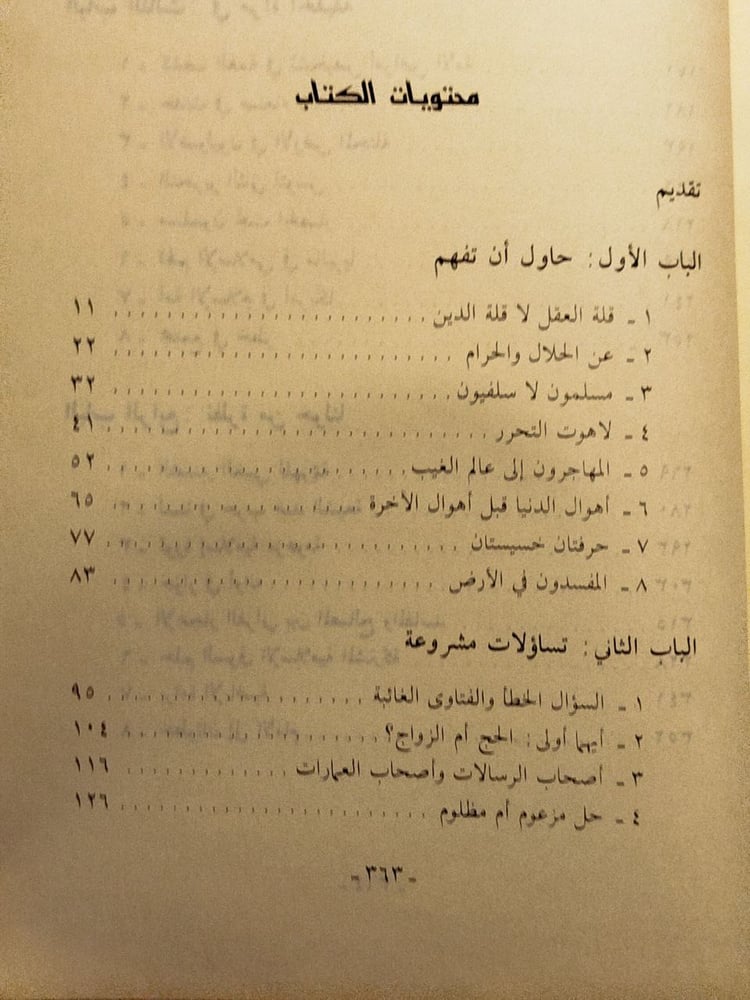 محتويات الكتاب
تقديم
الباب الأول: حاول أن تفهم
١ - قلة العقل لا قلة الدين .......................... ١١
٢ - عن الحلال والحرام .......................... ٢٢
٣ - مسلمون لا سلفيون .......................... ٣٢
٤ - لاهوت التحرر .......................... ٤١
٥ - المهاجرون إلى عالم الغيب .......................... ٥٢
٦ - أهوال الدنيا قبل أهوال الآخرة .......................... ٦٥
٧ - حرفتان خسيستان .......................... ٧٧
٨ - المفسدون في الأرض .......................... ٨٣
الباب الثاني: تساؤلات مشروعة
١ - السؤال الخطأ والفتاوى الغائبة .......................... ٩٥
٢ - أيهما أولى: الحج أم الزواج؟ .......................... ١٠٤
٣ - أصحاب الرسالات وأصحاب العمارات .......................... ١١٦
٤ - حل مزعوم أم مظلوم .......................... ١٢٦
- ٣٦٣ -